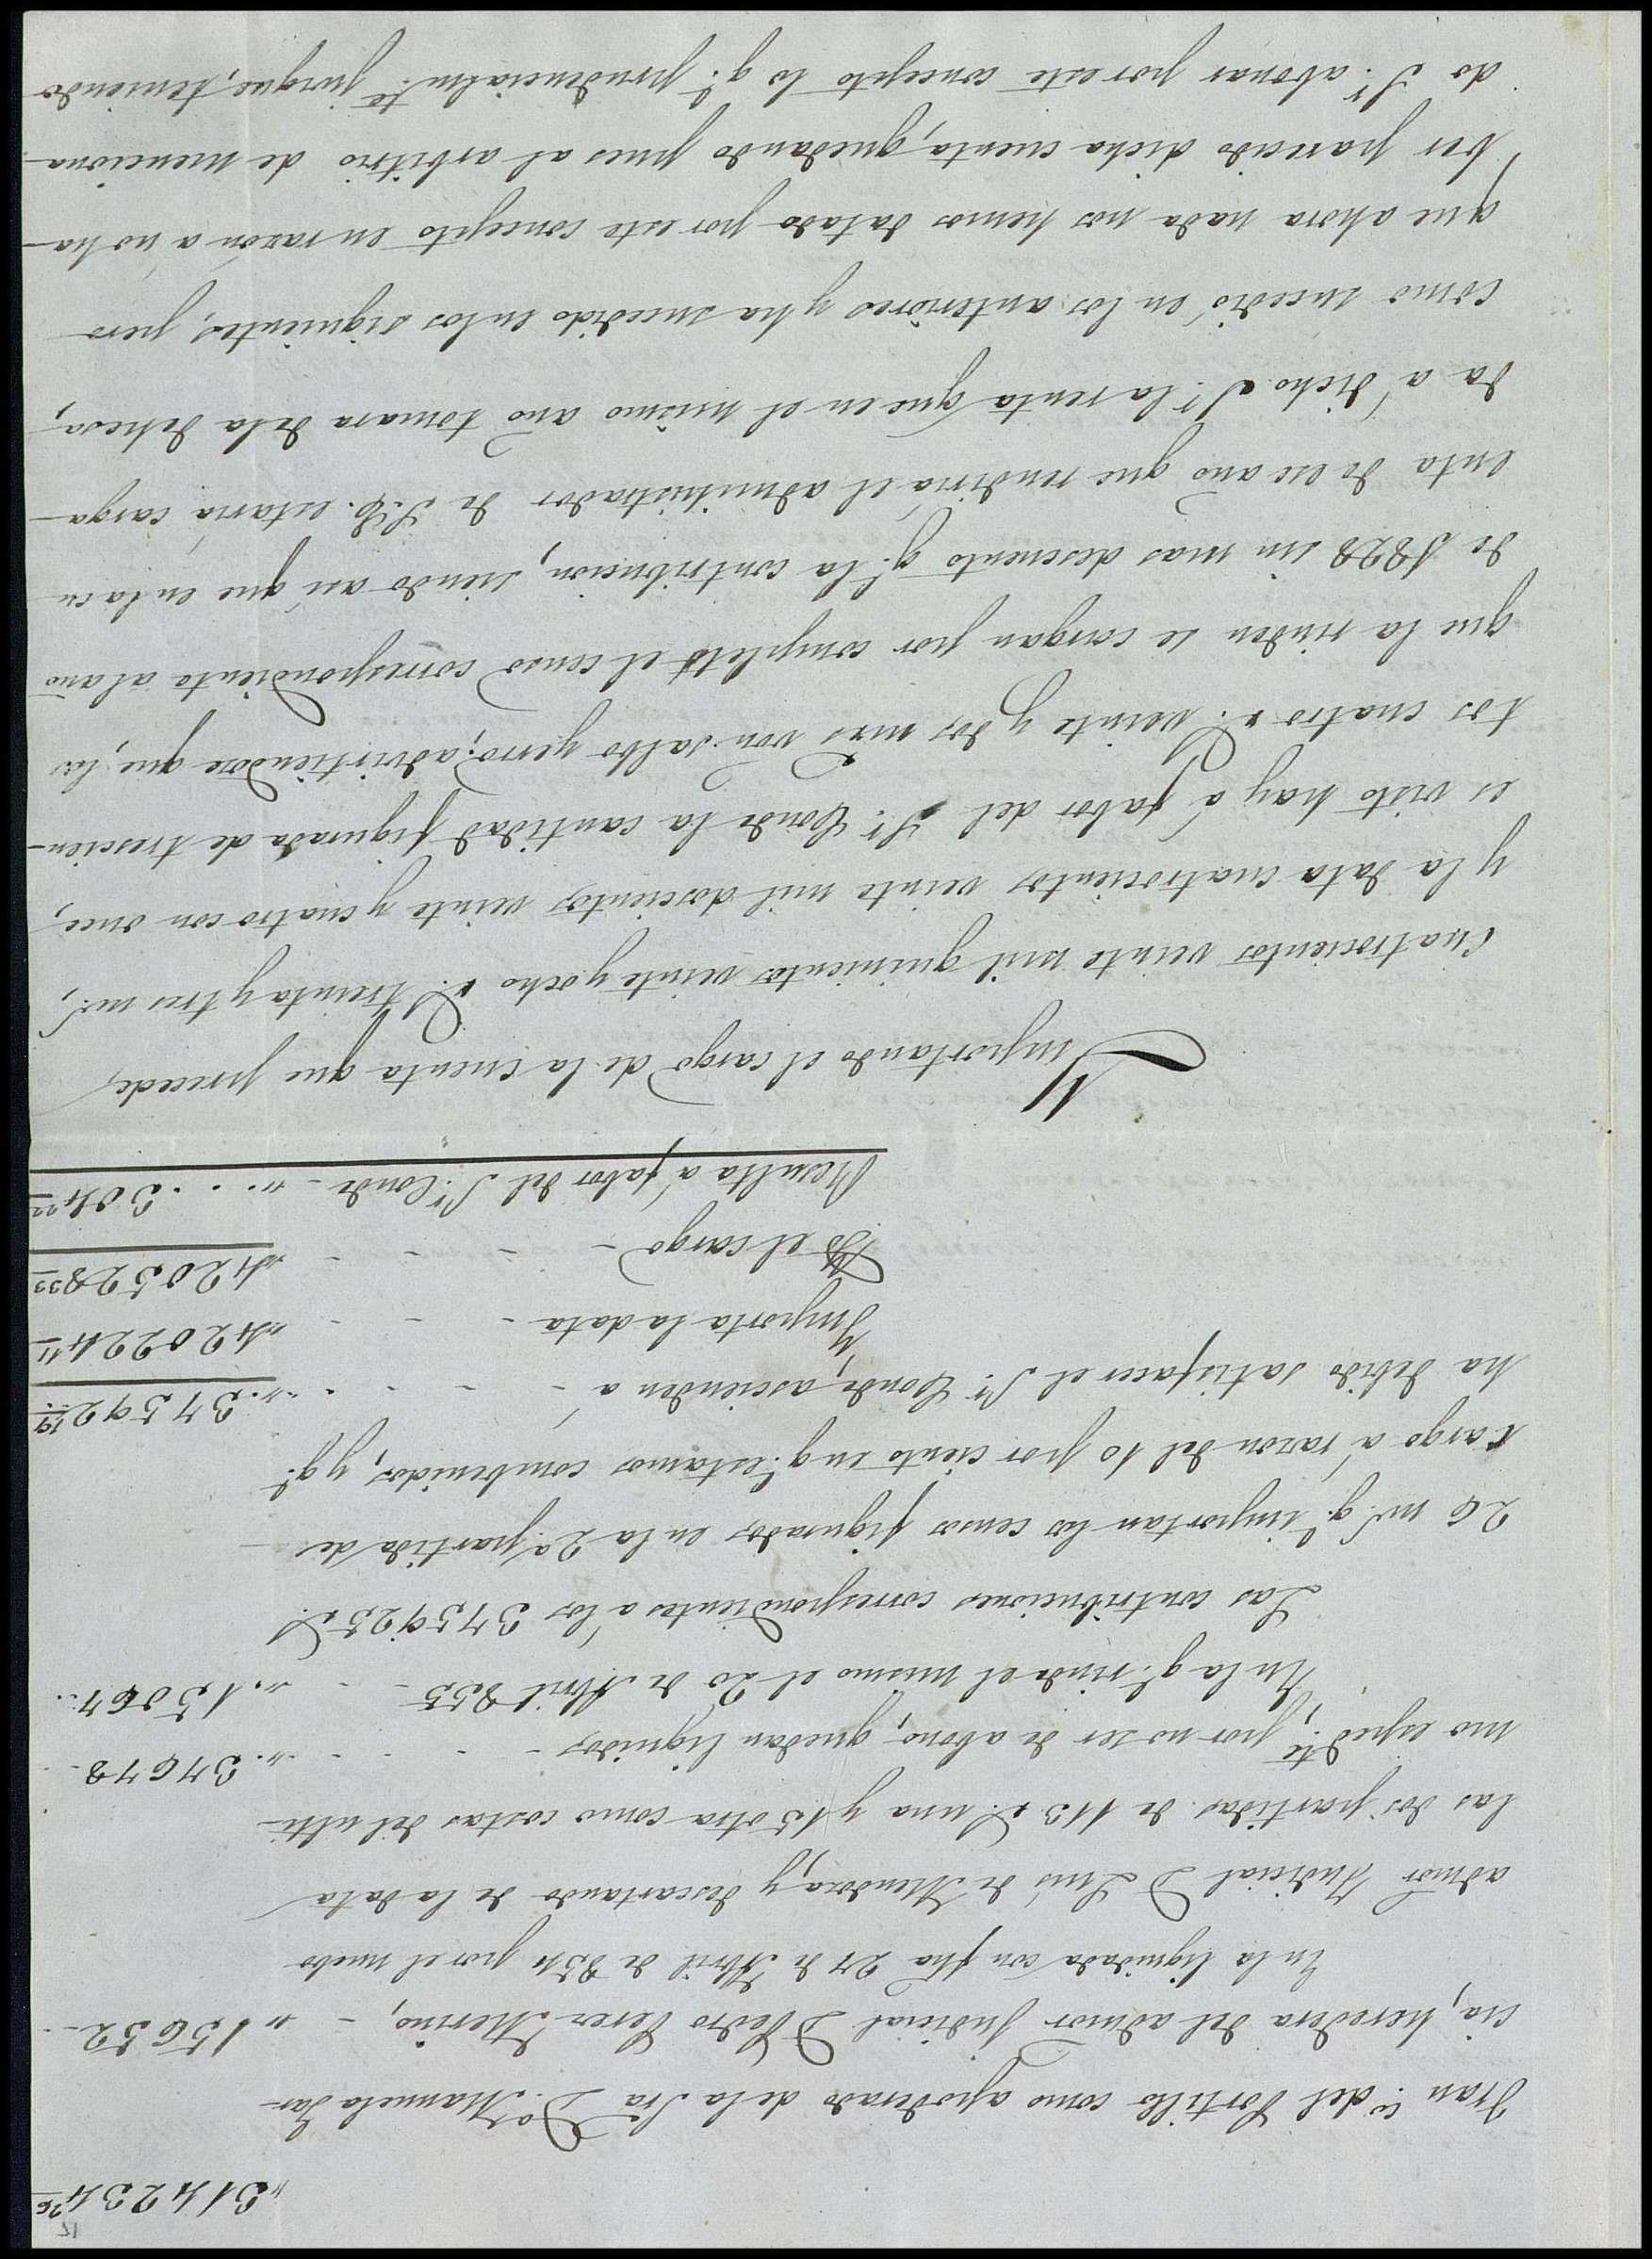 12
"314234 26
Fran.co del Portillo como apoderado de la Sra D.a Manuela Gar-
cia, heredera del admor Judicial D Pedro Perez Merino, - " 15652 -
En la liquidada con fha 27 de Abril de 854 por el nuebo
admor Judicial D Luis de Mendoza, y descartando de la data
las dos partidas de 113 r.s una y 15 otra como costas del ulti-
mo exped.te, por no ser de abono, quedan liquidos - - - - - ". 37678 -
En la q.e rinde el mismo el 20 de Abril 855 - - - ". 15067 ..
Las contribuciones correspondientes a los 375925 r.s
26 m.s q.e importan los censos figurados en la 2.a partida de
cargo á razon del 10 por ciento en q.e estamos combenidos, y q.e
ha debido satisfacer el S.r Conde, ascienden á - - - - - ". 37592 19
Importa la data - - - - "420224 11
Yd el cargo - - - - - "420528 33
Resulta á fabor del S.r Conde - " . . . 304 22
Importando el cargo de la cuenta que precede,
Cuatrocientos veinte mil quinientos veinte y ocho r.s treinta y tres m.s,
y la data cuatrocientos veinte mil doscientos veinte y cuatro con once,
es visto hay á fabor del S.r Conde la cantidad figurada de trescien-
tos cuatro r.s veinte y dos mrs von salbo yerro; advirtiendose que, los
que la rinden se cargan por completo el censo correspondiente al año
de 1828 sin mas descuento q.e la contribucion, siendo asi que en la cu-
enta de ese año que rendiria el administrador de S.E. estaria carga-
da á dicho S.r la renta que en el mismo año tomara de la dehesa,
como sucedió en los anteriores y ha sucedido en los siguientes, pero
que ahora nada nos hemos datado por este concepto en razon á no ha-
ber parecido dicha cuenta, quedando pues al arbitrio de menciona-
do S.r abonar por este concepto lo q.e prudencialm.te juzgue, teniendo